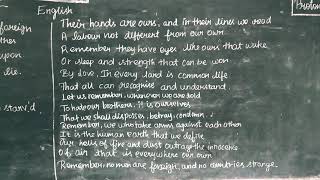 English
foreign
ther
upon
lie.
stary'd
Their hands are ours, and in their lines we read
A labour not different from our own
Remember they have eyes like ours that wake
Or sleep and strength that can be won
By love. In every land is common life
That all can recognise and understand
Let us remember, whenever we are told
To hate our brothers, it is ourselves
That we shall dispossess, betray, condemn
Remember, we who take arms against each other
It is the human Earth that we defile
Our hells of fire and dust outrage the innocence
Of air that is everywhere our own
Remember, no men are foreign, and no countries strange.